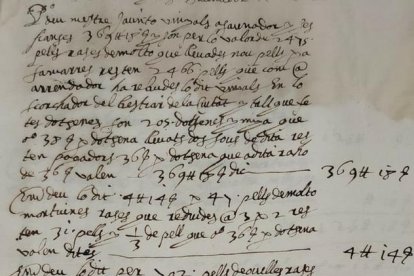 deu mestre Jaume vinyals assaunador y
369 ₶ 18 ꝯ y son per lo valor de 2475
pells rases de molto que llevades nou pells p a
samarres resten 2466 pells que com @
arrendador ha rebudes lo dit vinyals en lo
escorchador del bestiar de la ciutat y tall que le
tes dotsenes son 205 dotsenes y mija que
38 ꝯ dotsena llevats dos sous de dita res
ten pagadors 36 ꝯ dotsena que a dita raho
de 36 ꝯ valen 369 ₶ 18 ꝯ dic 369 ₶ 18 ꝯ
deu lo dit 4 ₶ 14 ꝯ 47 pells de molto
mortuines rases que redudes @ 3 x 2 res
ten 31 pells y 1/3 de pell que 36 ꝯ dotsena
valen dites 4 ₶ 14 ꝯ
deu lo dit per 23 pells de ovelles rases